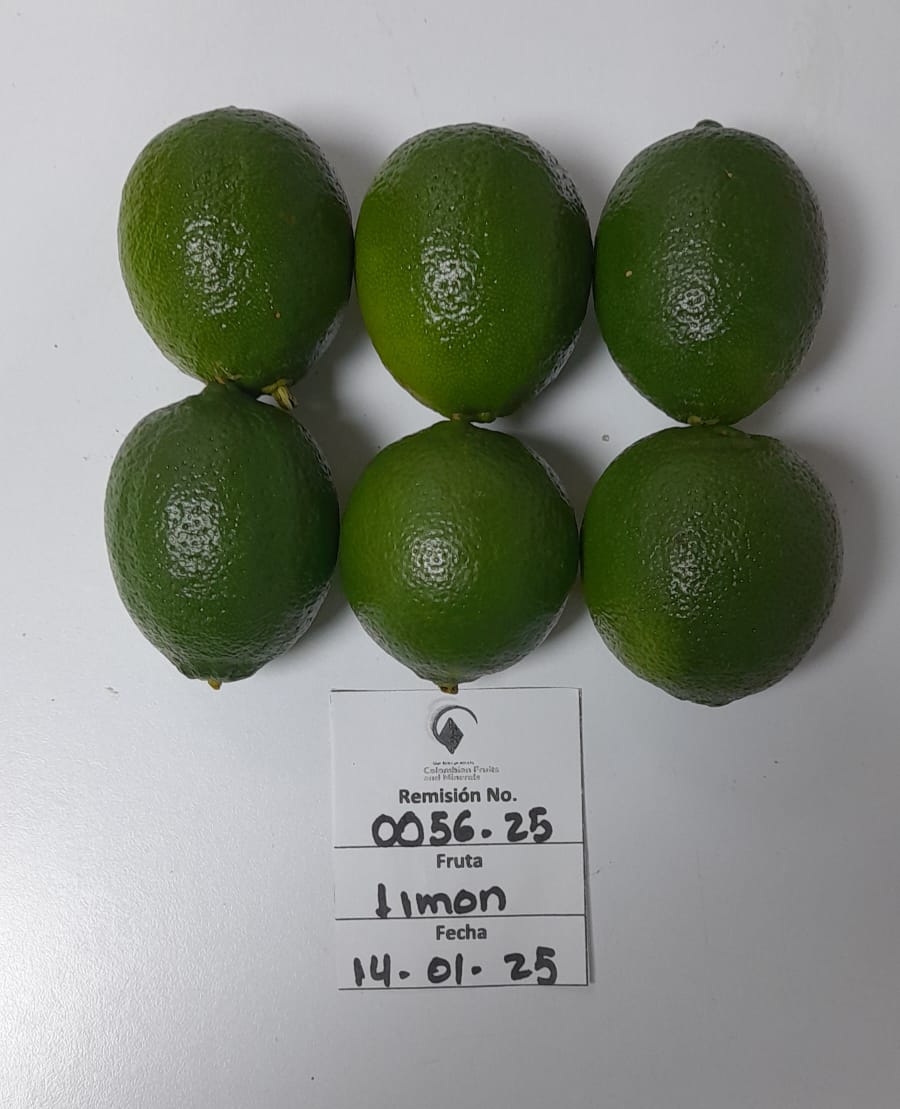 Colombian Fruits
and Minerals
Remisión No.
0056.25
Fruta
limon
Fecha
14-01-25